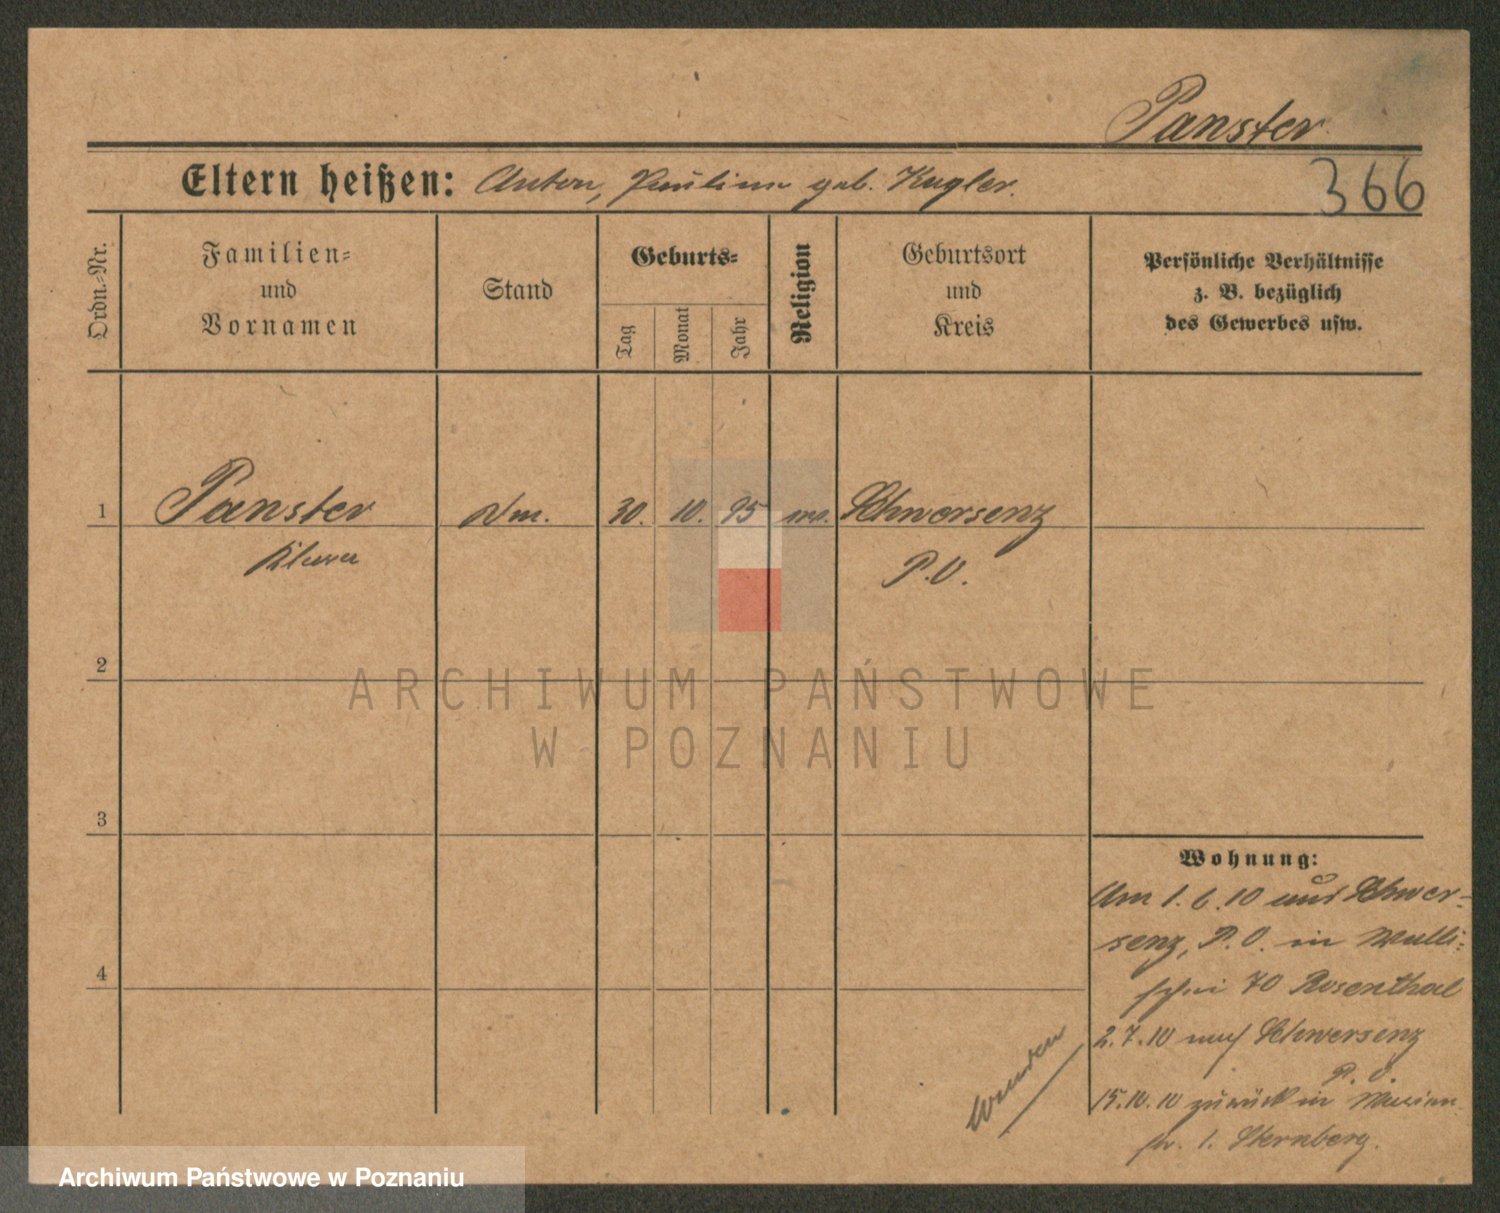 Panster
Eltern heißen: Anton, Pauline geb. Kugler.
366
Ordn.-Nr.
Familien- und Vornamen
Stand
Geburts-
Tag
Monat
Jahr
Religion
Geburtsort und Kreis
Persönliche Verhältnisse
z. B. bezüglich
des Gewerbes usw.
1 Panster 30. 10. 95 Schwersenz
P. O.
2
ARCHIWUM PAŃSTWOWE
W POZNANIU
3
Wohnung:
4
Am 1. 6. 10 aus Schwer-
senz, P. O. in Walli-
schei 70 Rosenthal
2. 7. 10 nach Schwersenz
P. O.
15. 10. 10 zurück in Marien
str. 1. Sternberg.
Archiwum Państwowe w Poznaniu